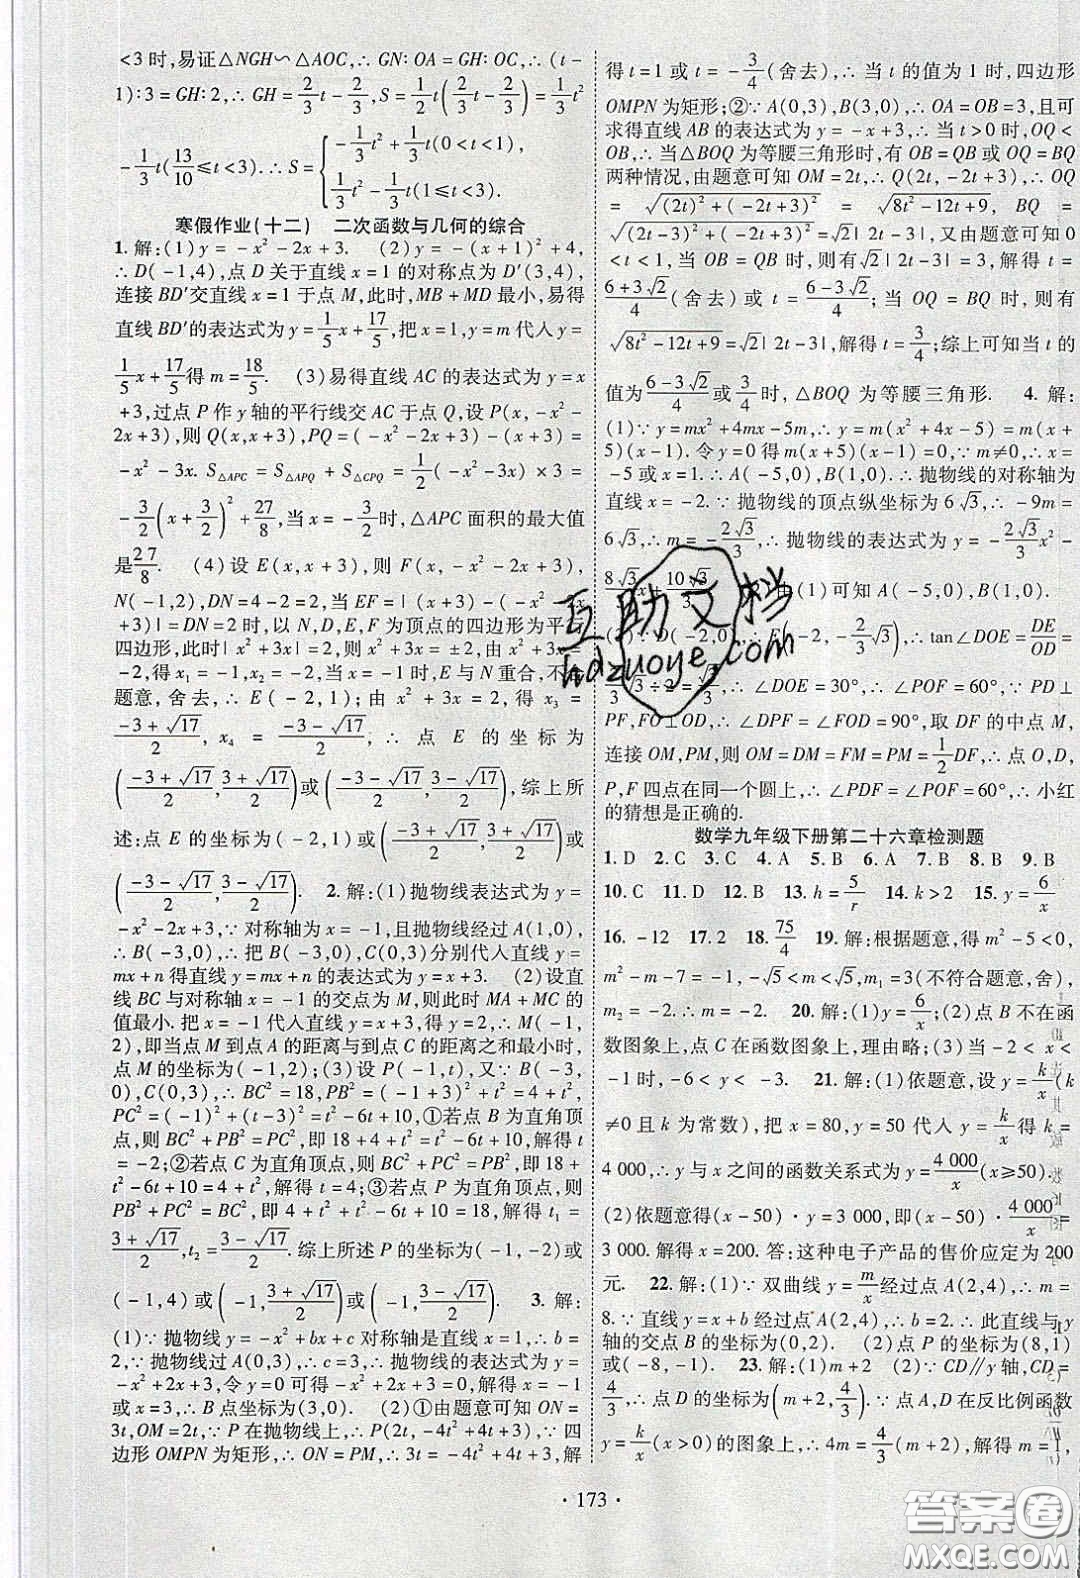 <3时,易证△NGH∽△AOC,∴GN:OA=GH:OC,∴(t-
1):3=GH:2,∴GH=2/3t-2/3,S=1/2t(2/3t-2/3)=1/3t²
-1/3t(13/10≤t<3).∴S={-1/3t²+1/3t(0<t<1), 1/3t²-1/3t(1≤t<3).
寒假作业(十二) 二次函数与几何的综合
1.解:(1)y=-x²-2x+3. (2)y=-(x+1)²+4,
∴D(-1,4),点D关于直线x=1的对称点为D'(3,4),
连接BD'交直线x=1于点M,此时,MB+MD最小,易得
直线BD'的表达式为y=1/5x+17/5,把x=1,y=m代入y=
1/5x+17/5得m=18/5. (3)易得直线AC的表达式为y=x
+3,过点P作y轴的平行线交AC于点Q,设P(x,-x²-
2x+3),则Q(x,x+3),PQ=(-x²-2x+3)-(x+3)=
-x²-3x.S△APC=S△APQ+S△CPQ=1/2(-x²-3x)×3=
-3/2(x+3/2)²+27/8,当x=-3/2时,△APC面积的最大值
是27/8. (4)设E(x,x+3),则F(x,-x²-2x+3),
N(-1,2),DN=4-2=2,当EF=|(x+3)-(-x²-2x
+3)|=DN=2时,以N,D,E,F为顶点的四边形为平行
四边形,此时|x²+3x|=2,∴x²+3x=±2,由x²+3x=
-2,得x=-1或x=-2,当x=-1时,E与N重合,不合
题意,舍去,∴E(-2,1);由x²+3x=2,得x₃=
(-3+√17)/2,x₄=(-3-√17)/2,∴点E的坐标为
((-3+√17)/2,(3+√17)/2)或((-3-√17)/2,(3-√17)/2),综上所
述:点E的坐标为(-2,1)或((-3+√17)/2,(3+√17)/2)或
((-3-√17)/2,(3-√17)/2). 2.解:(1)抛物线表达式为y=
-x²-2x+3,∵对称轴为x=-1,且抛物线经过A(1,0),
∴B(-3,0),∴把B(-3,0),C(0,3)分别代入直线y=
mx+n得直线y=mx+n的表达式为y=x+3. (2)设直
线BC与对称轴x=-1的交点为M,则此时MA+MC的
值最小.把x=-1代入直线y=x+3,得y=2,∴M(-1,
2),即当点M到点A的距离与到点C的距离之和最小时,
点M的坐标为(-1,2);(3)设P(-1,t),又∵B(-3,
0),C(0,3),∴BC²=18,PB²=(-1+3)²+t²=4+t²,
PC²=(-1)²+(t-3)²=t²-6t+10,①若点B为直角顶
点,则BC²+PB²=PC²,即18+4+t²=t²-6t+10,解得t
=-2;②若点C为直角顶点,则BC²+PC²=PB²,即18+
t²-6t+10=4+t²,解得t=4;③若点P为直角顶点,则
PB²+PC²=BC²,即4+t²+t²-6t+10=18,解得t₁=
(3+√17)/2,t₂=(3-√17)/2.综上所述P的坐标为(-1,-2)或
(-1,4)或(-1,(3+√17)/2)或(-1,(3-√17)/2). 3.解:
(1)∵抛物线y=-x²+bx+c对称轴是直线x=1,∴b=
2,∵抛物线过A(0,3),∴c=3,∴抛物线的表达式为y=
-x²+2x+3,令y=0可得-x²+2x+3=0,解得x=-1
或x=3,∴B点坐标为(3,0). (2)①由题意可知ON=
3t,OM=2t,∵P在抛物线上,∴P(2t,-4t²+4t+3),∵四
边形OMPN为矩形,∴ON=PM,∴3t=-4t²+4t+3,解
得t=1或t=-3/4(舍去),∴当t的值为1时,四边形
OMPN为矩形;②∵A(0,3),B(3,0),∴OA=OB=3,且可
求得直线AB的表达式为y=-x+3,∴当t>0时,OQ<
OB,∴当△BOQ为等腰三角形时,有OB=QB或OQ=BQ
两种情况,由题意可知OM=2t,∴Q(2t,-2t+3),∴OQ
=√((2t)²+(-2t+3)²)=√(8t²-12t+9),BQ=
√((2t-3)²+(-2t+3)²)=√2|2t-3|,又由题意可知0
<t<1,当OB=QB时,则有√2|2t-3|=3,解得t=
(6+3√2)/4(舍去)或t=(6-3√2)/4;当OQ=BQ时,则有
√(8t²-12t+9)=√2|2t-3|,解得t=3/4;综上可知当t的
值为(6-3√2)/4或3/4时,△BOQ为等腰三角形. 4.解:
(1)∵y=mx²+4mx-5m,∴y=m(x²+4x-5)=m(x+
5)(x-1).令y=0得m(x+5)(x-1)=0,∵m≠0,∴x=
-5或x=1.∴A(-5,0),B(1,0).∴抛物线的对称轴为
直线x=-2.∵抛物线的顶点纵坐标为6√3,∴-9m=
6√3.∴m=-2√3/3,∴抛物线的表达式为y=-2√3/3x²-
8√3/3x+10√3/3. 由(1)可知A(-5,0),B(1,0).
∴D(-2,0),E(-2,-2/3√3),∴tan∠DOE=DE/OD=
√3÷2=√3/3,∴∠DOE=30°,∴∠POF=60°,∵PD⊥
PF,FO⊥OD,∴∠DPF=∠FOD=90°,取DF的中点M,
连接OM,PM,则OM=DM=FM=PM=1/2DF,∴点O,D,
P,F四点在同一个圆上,∴∠PDF=∠POF=60°,∴小红
的猜想是正确的.
数学九年级下册第二十六章检测题
1.D 2.C 3.C 4.A 5.B 6.A 7.B 8.B 9.B
10.C 11.D 12.B 13.h=5/r 14.k>2 15.y=6/x
16.-12 17.2 18.75/4 19.解:根据题意,得m²-5<0,
m²-m-7=-1,-√5<m<√5,m₁=3(不符合题意,舍),
m₂=-2.∴m=-2. 20.解:(1)y=6/x;(2)点B不在函
数图象上,点C在函数图象上,理由略;(3)当-2<x<
-1时,-6<y<-3. 21.解:(1)依题意,设y=k/x(k
≠0且k为常数),把x=80,y=50代入y=k/x得k=
4 000,∴y与x之间的函数关系式为y=4 000/x(x≥50).
(2)依题意得(x-50)·y=3 000,即(x-50)·4 000/x=
3 000.解得x=200.答:这种电子产品的售价应定为200
元. 22.解:(1)∵双曲线y=m/x经过点A(2,4),∴m=
8.∵直线y=x+b经过点A(2,4),∴b=2.∴此直线与y
轴的交点B的坐标为(0,2). (2)点P的坐标为(8,1)
或(-8,-1). 23.解:(1)m+2 (2)∵CD∥y轴,CD=
4/3,∴点D的坐标为(m+2,4/3).∵点A,D在反比例函数
y=k/x(x>0)的图象上,∴4m=4/3(m+2),解得m=1,
·173·
互助文档
hdzuoye.com
答案圈
MXQE.COM